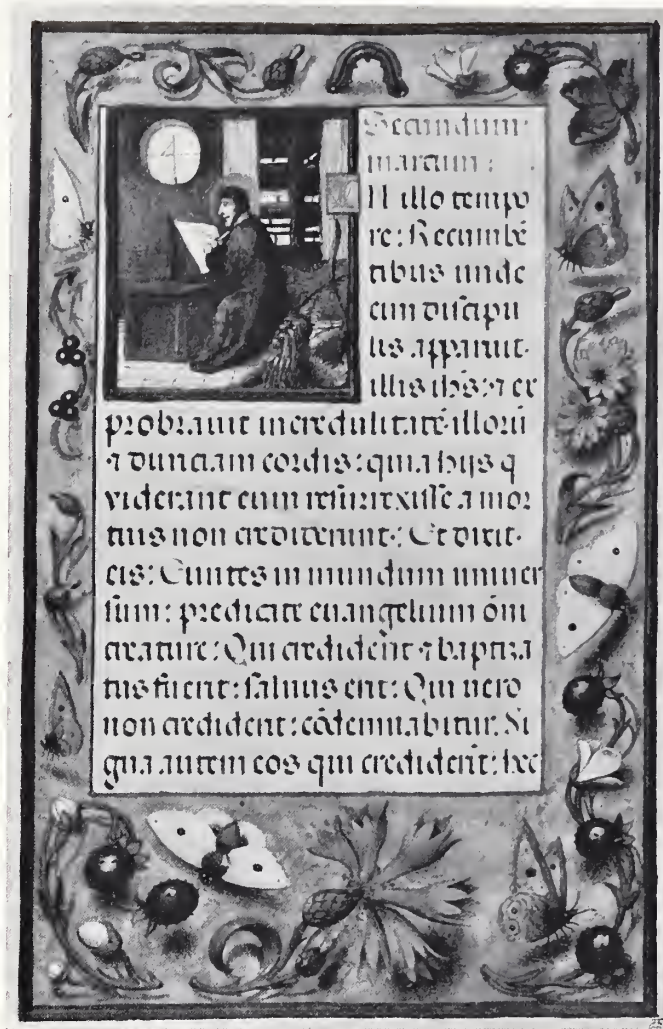 Secundum
marcum :
N illo tempo
re: Recumbē
tibus unde
cim discipu
lis apparuit.
illis ihs: ⁊ ex
probrauit incredulitatē illorū
⁊ duriciam cordis: quia hijs q
viderant eum resurrexisse a mor
tuis non crediderunt: Et dixit.
eis: Euntes in mundum uniuer
sum: predicate euangelium ōni
creature: Qui crediderit ⁊ baptiza
tus fuerit: saluus erit: Qui uero
non crediderit: cōdemnabitur. Si
gna autem eos qui crediderīt: hec